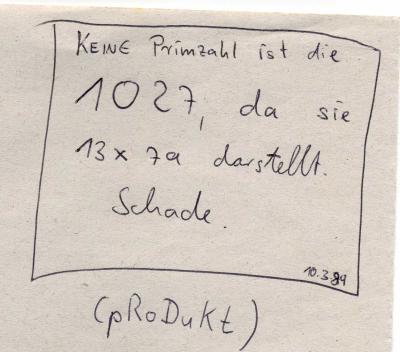 KEINE Primzahl ist die
1027, da sie
13 x 79 darstellt.
Schade.
10.3.89
(pRoDuKt)